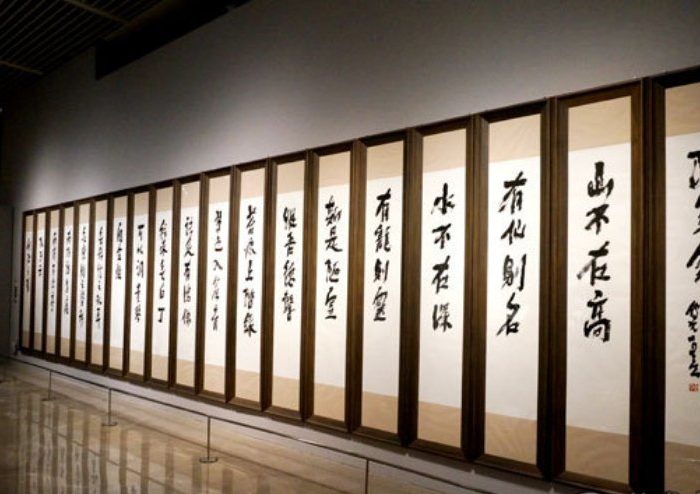 陋室銘
山不在高
有仙則名
水不在深
有龍則靈
斯是陋室
惟吾德馨
苔痕上階綠
草色入簾青
談笑有鴻儒
往來無白丁
可以調素琴
閱金經
無絲竹之亂耳